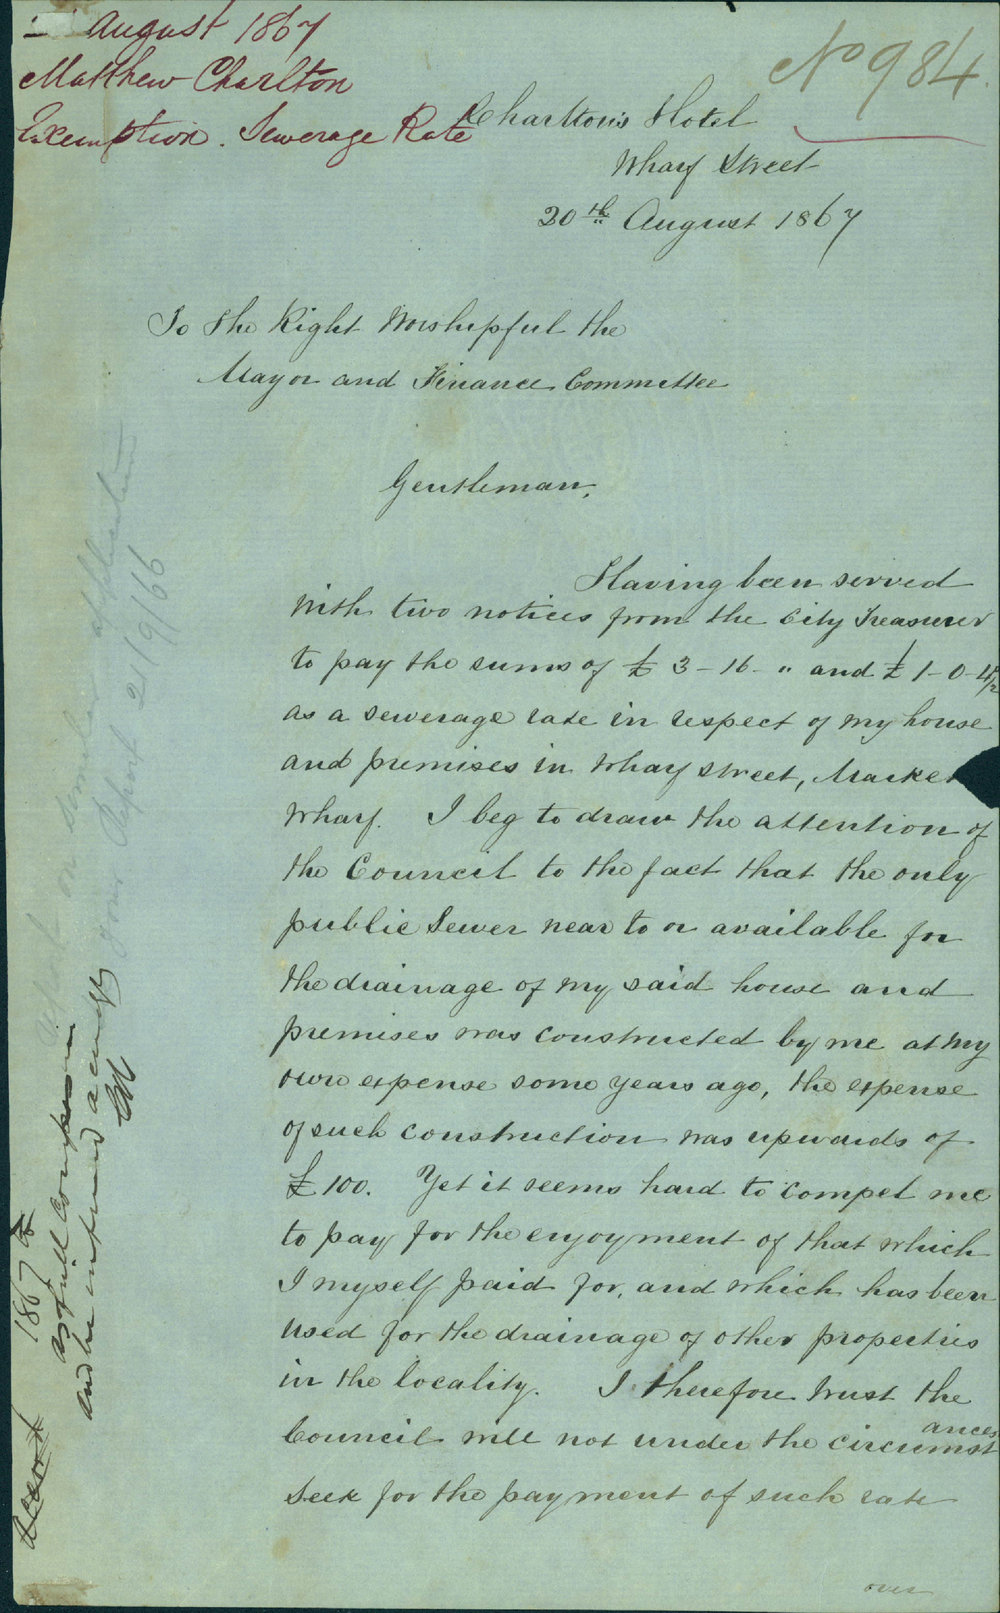 August 1867
Matthew Charlton
Exemption. Sewerage Rate
No 984
Charlton's Hotel
Wharf Street
20th August 1867
To The Right Worshipful the
Mayor and Finance Committee
Gentleman,
Having been served
with two notices from the City Treasurer
to pay the sums of £3-16-" and £1-0-4½
as a sewerage rate in respect of my house
and premises in Wharf Street, Market
Wharf. I beg to draw the attention of
the Council to the fact that the only
public Sewer near to or available for
the drainage of my said house and
premises was constructed by me at my
own expense some years ago, the expense
of such construction was upwards of
£100. Yet it seems hard to compel me
to pay for the enjoyment of that which
I myself paid for, and which has been
used for the drainage of other properties
in the locality. I therefore trust the
Council will not under the circumstances
seek for the payment of such rate
over
on similar application
your Report 21/9/66
1867 to
as full
and he informed accordingly